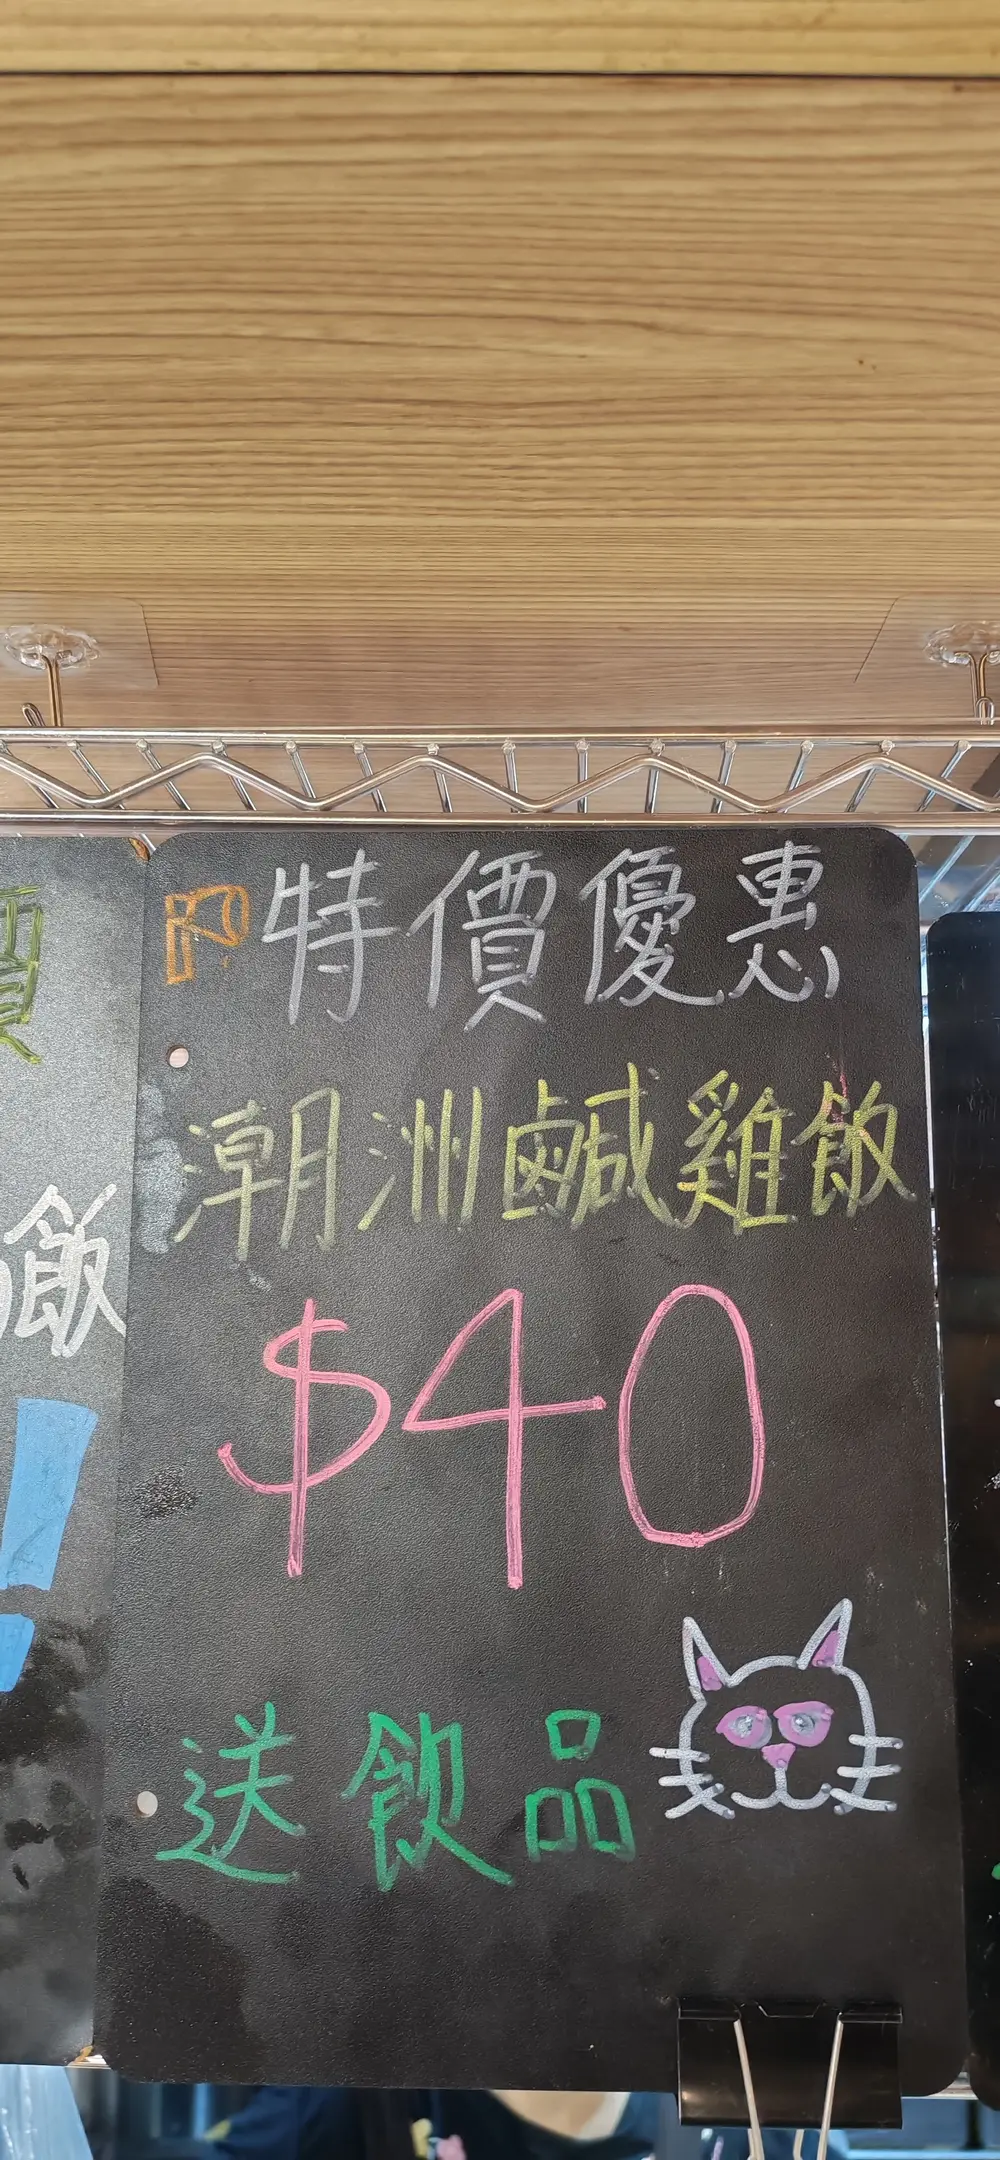 特價優惠
潮洲鹹雞飯
$40
送飲品
飯
!